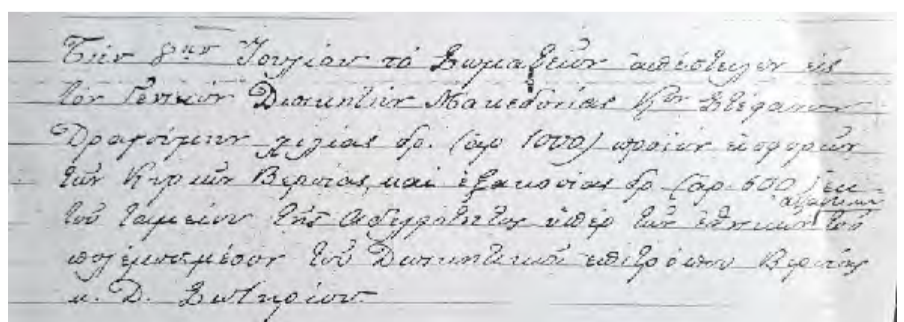 Τὴν 8ην Ἰουλίου τὸ Σωματεῖον ἀπέστειλεν εἰς
τὸν Γενικὸν Διοικητὴν Μακεδονίας Κον Στέφανον
Δραγούμην χιλίας δρ. (άρ 1000) προϊὸν εἰσφορῶν
τῶν Κυριῶν Βερροίας, καὶ ἑξακοσίας δρ (άρ. 600) ἐκ
τοῦ ταμείου τῆς Ἀδελφότητος ὑπὲρ τῶν ἐθνικῶν τοῦ
πολέμου μέσον τοῦ Διοικητικοῦ ἐπιτρόπου Βερροίας
κ. Δ. Σωτηρίου